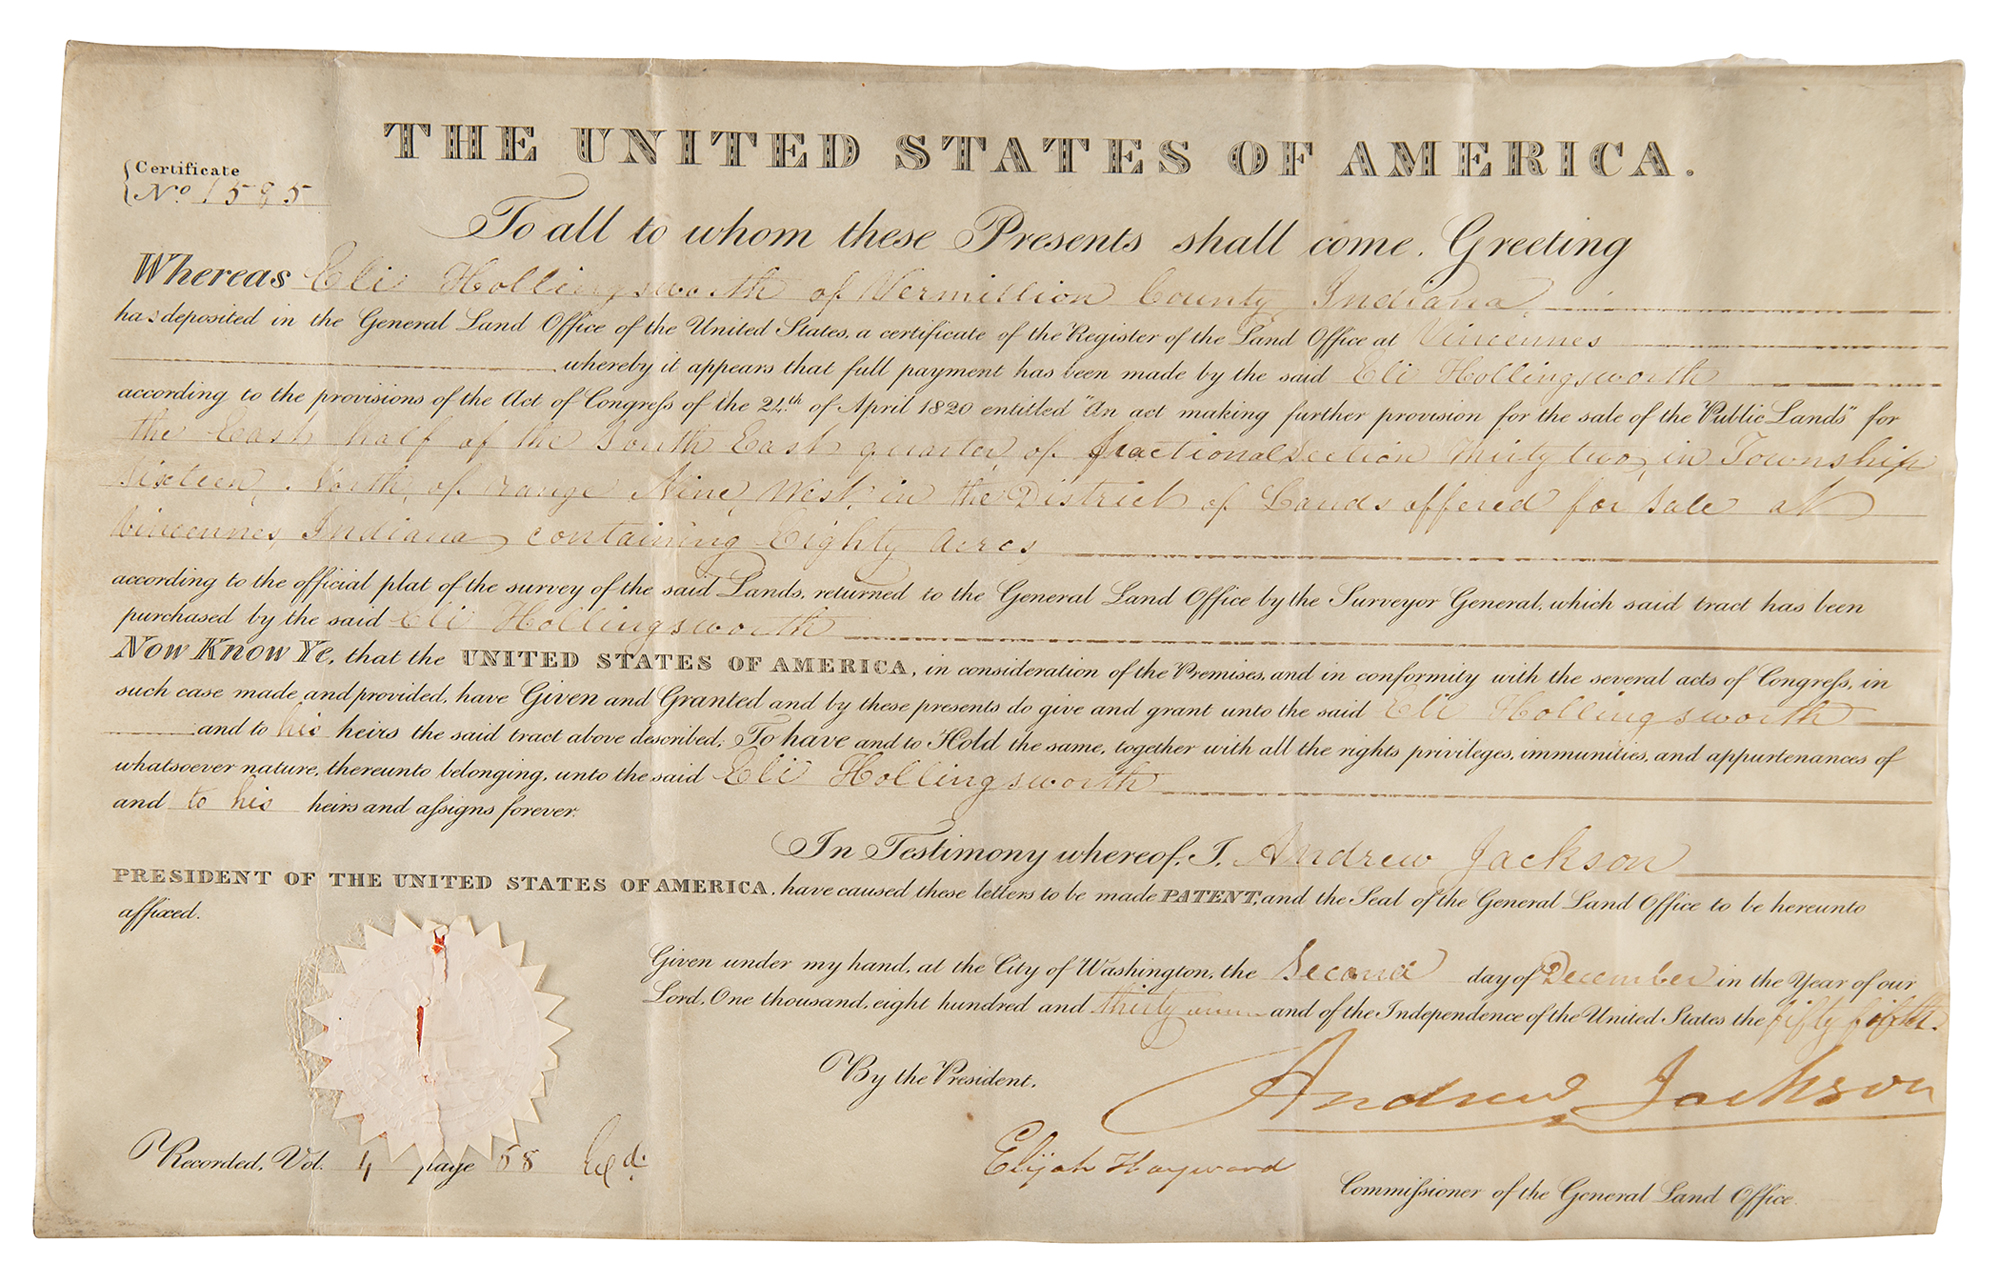 THE UNITED STATES OF AMERICA.
Certificate
No. 1595
To all to whom these Presents shall come, Greeting
Whereas Eli Hollingsworth of Vermillion County Indiana,
has deposited in the General Land Office of the United States, a certificate of the Register of the Land Office at Vincennes
whereby it appears that full payment has been made by the said Eli Hollingsworth
according to the provisions of the Act of Congress of the 24th. of April 1820 entitled "An act making further provision for the sale of the Public Lands" for
the East half of the South East quarter, of fractional Section Thirty two, in Township
Sixteen, North, of range Nine, West, in the District of Lands offered for Sale at
Vincennes, Indiana, containing Eighty acres,
according to the official plat of the survey of the said Lands, returned to the General Land Office by the Surveyor General, which said tract has been
purchased by the said Eli Hollingsworth
Now Know Ye, that the UNITED STATES OF AMERICA, in consideration of the Premises, and in conformity with the several acts of Congress, in
such case made and provided, have Given and Granted and by these presents do give and grant unto the said Eli Hollingsworth
and to his heirs the said tract above described; To have and to Hold the same, together with all the rights privileges, immunities, and appurtenances of
whatsoever nature, thereunto belonging, unto the said Eli Hollingsworth
and to his heirs and assigns forever.
In Testimony whereof, I, Andrew Jackson
PRESIDENT OF THE UNITED STATES OF AMERICA, have caused these letters to be made PATENT, and the Seal of the General Land Office to be hereunto
affixed.
Given under my hand, at the City of Washington, the Second day of December in the Year of our
Lord, One thousand, eight hundred and thirty and of the Independence of the United States the fifty fifth.
By the President, Andrew Jackson
Elijah Hayward
Commissioner of the General Land Office.
Recorded, Vol. 4 page 58